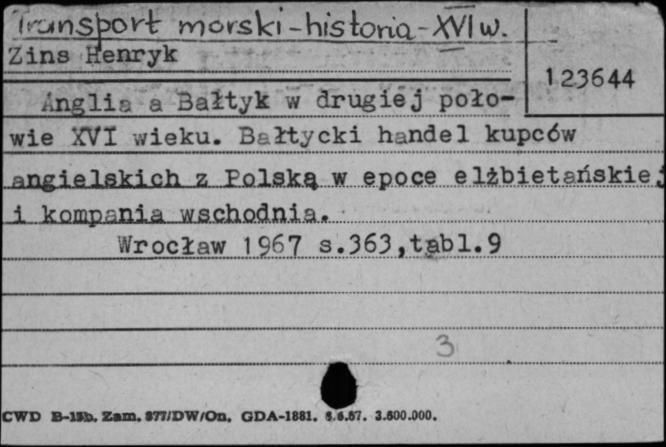 Transport morski - historia - XVI w.
Zins Henryk
123644
Anglia a Bałtyk w drugiej poło-
wie XVI wieku. Bałtycki handel kupców
angielskich z Polską w epoce elżbietańskiej
i kompania wschodnia.
Wrocław 1967 s.363,tabl.9
3
CWD B-15b. Zam. 877/DW/On. GDA-1881. 6.6.67. 3.600.000.